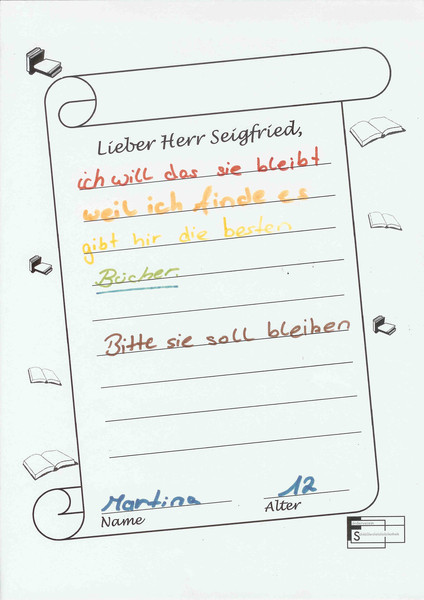 Lieber Herr Seigfried,
ich will das sie bleibt
weil ich finde es
gibt hir die besten
Bücher.
Bitte sie soll bleiben
Martina 12
Name Alter